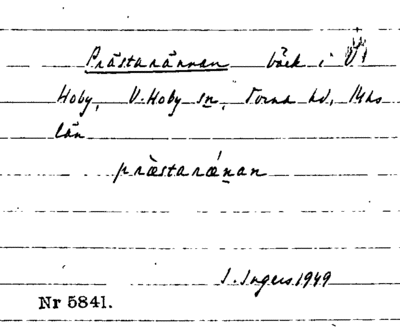 Prästarännan bäck i V.
Hoby, V. Hoby sn, Torna hd, Mhs
län
præ̀starǽnan
I. Ingers 1949
Nr 5841.